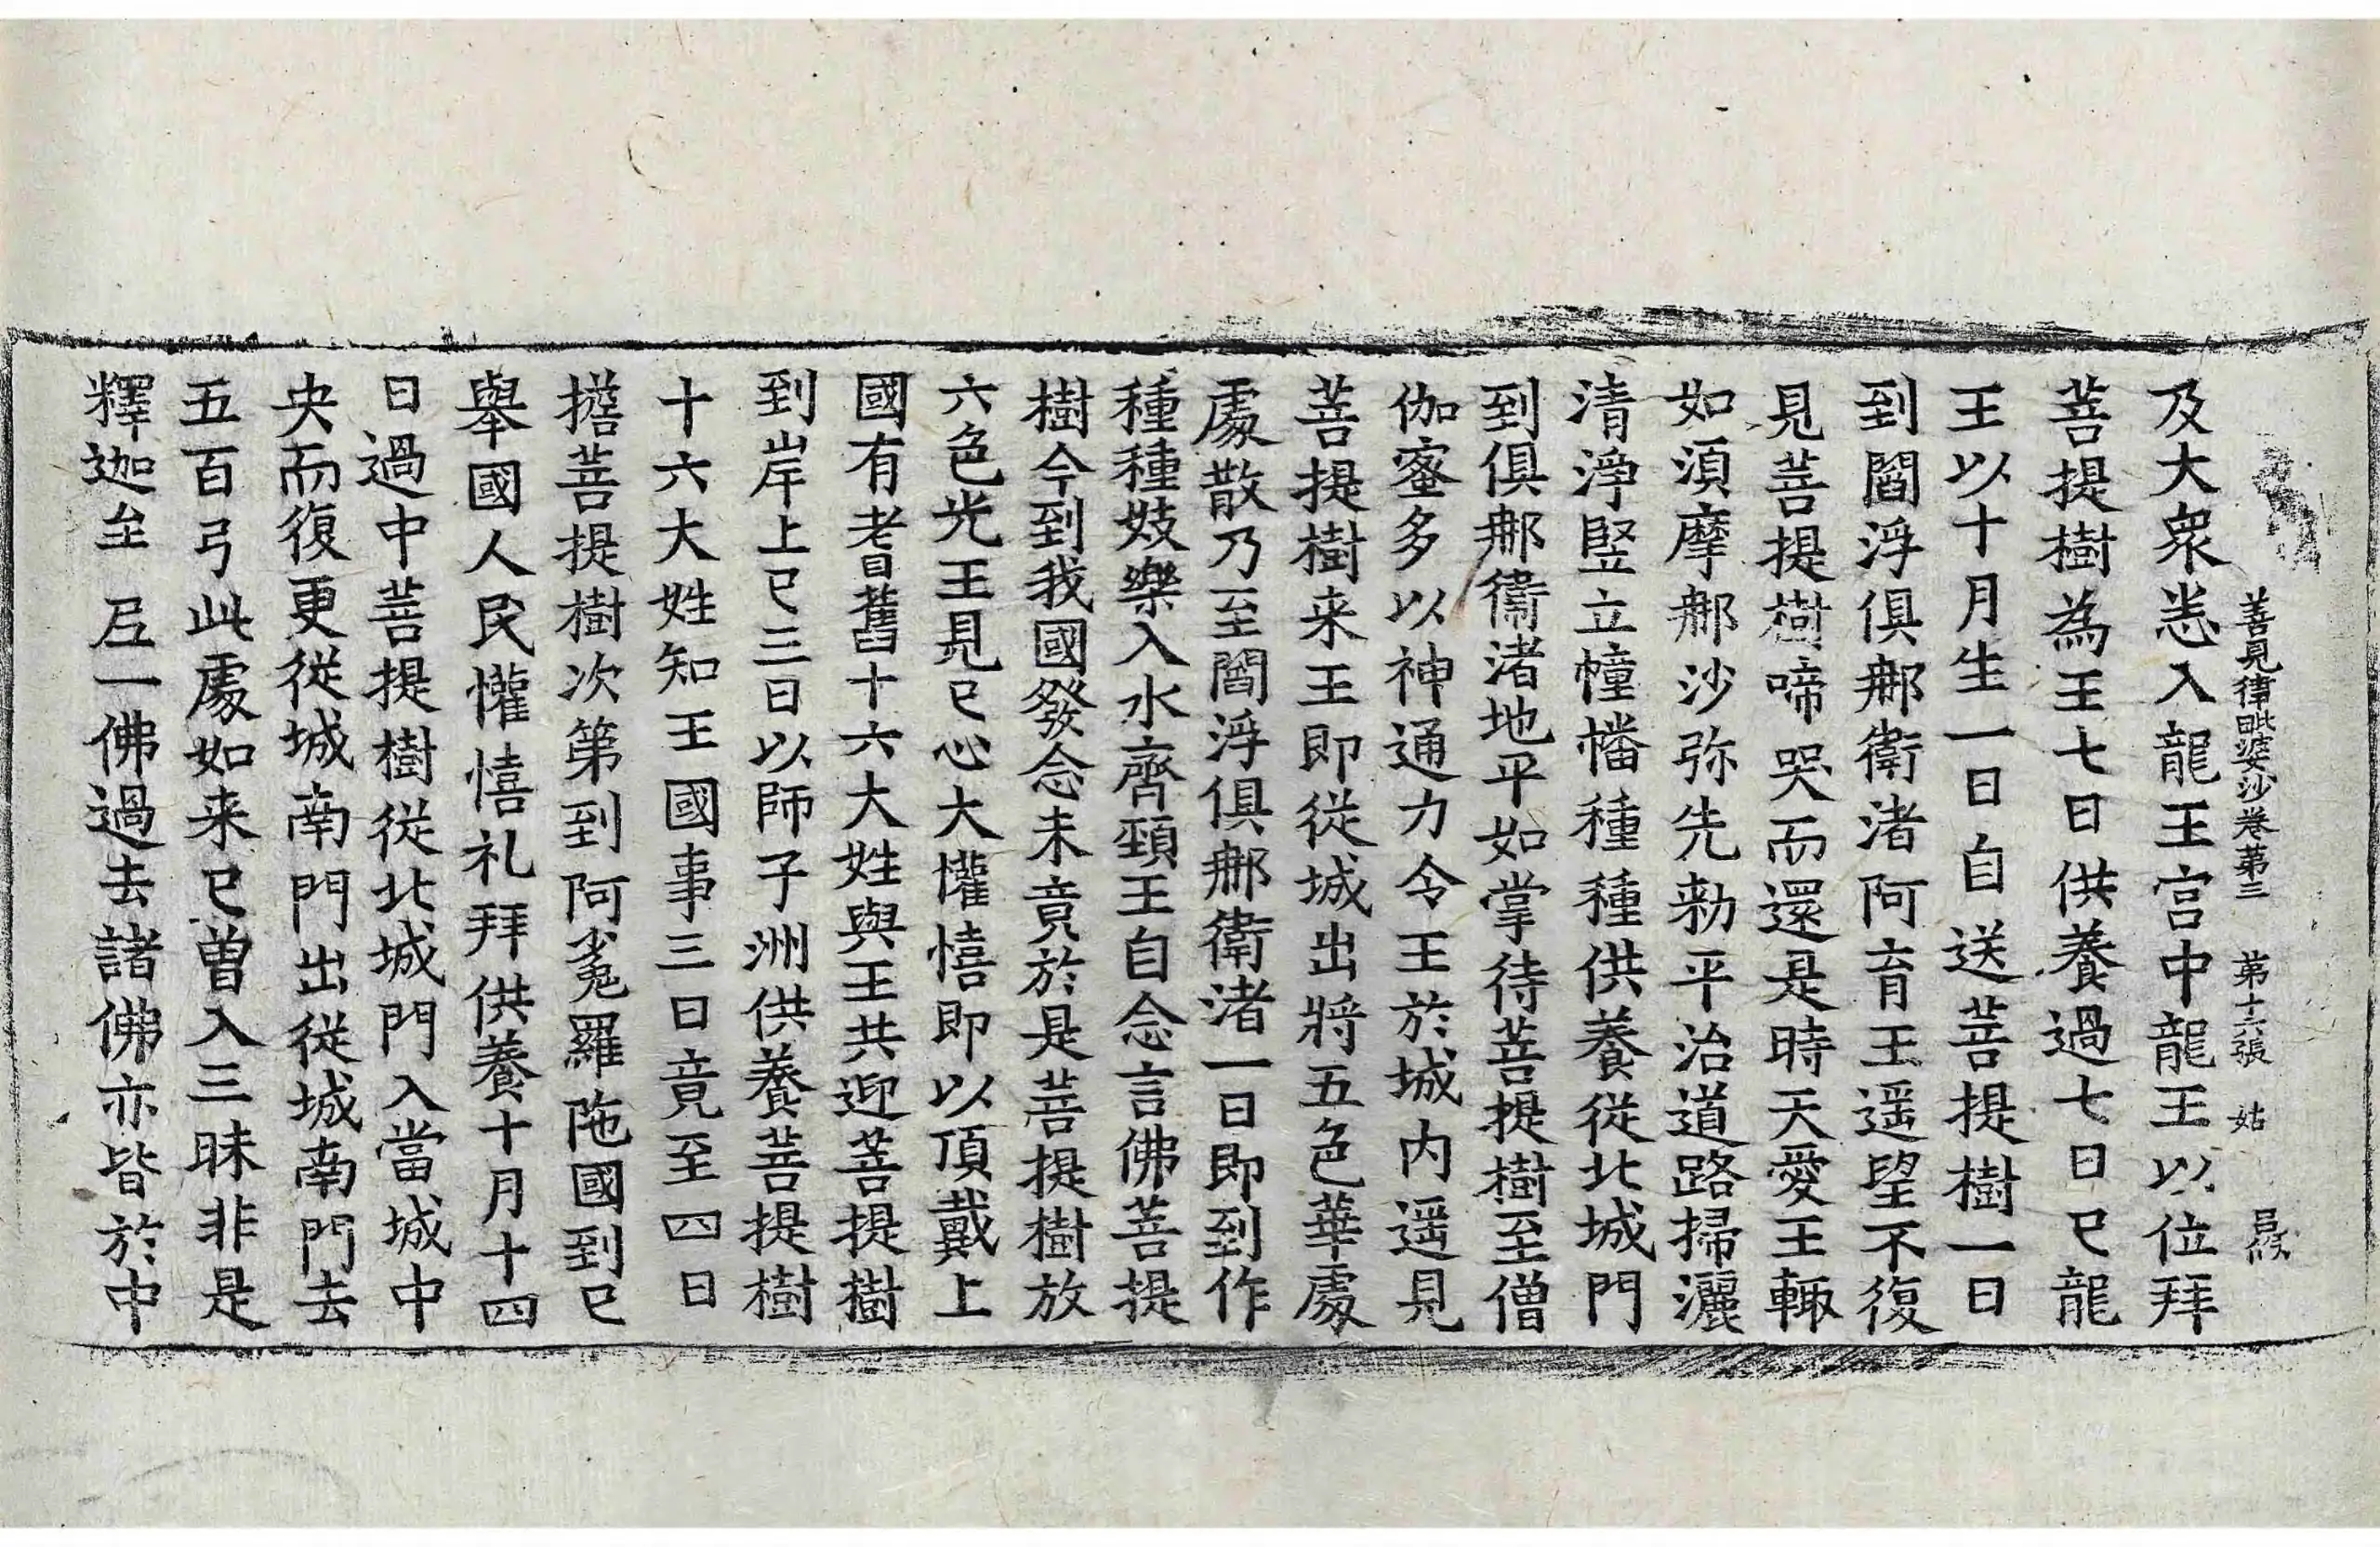 善見律毗婆沙卷第三 第十六張 姑
及大衆悉入龍王宫中龍王以位拜
菩提樹為王七日供養過七日已龍
王以十月生一日自送菩提樹一日
到閻浮俱那衛渚阿育王遥望不復
見菩提樹啼哭而還是時天愛王輙
如湏摩那沙弥先勑平治道路掃灑
清淨竪立幢幡種種供養從北城門
到俱那衛渚地平如掌待菩提樹至僧
伽蜜多以神通力令王於城内遥見
菩提樹来王即從城出將五色華處
處散乃至閻浮俱那衛渚一日即到作
種種妓樂入水齊頸王自念言佛菩提
樹今到我國發念未竟於是菩提樹放
六色光王見已心大懽憘即以頂戴上
國有耆舊十六大姓與王共迎菩提樹
到岸上已三日以師子洲供養菩提樹
十六大姓知王國事三日竟至四日
擔菩提樹次第到阿㝹羅陁國到已
舉國人民懽憘礼拜供養十月十四
日過中菩提樹從北城門入當城中
央而復更從城南門出從城南門去
五百弓此處如来已曽入三昧非是
釋迦至一佛過去諸佛亦皆於中